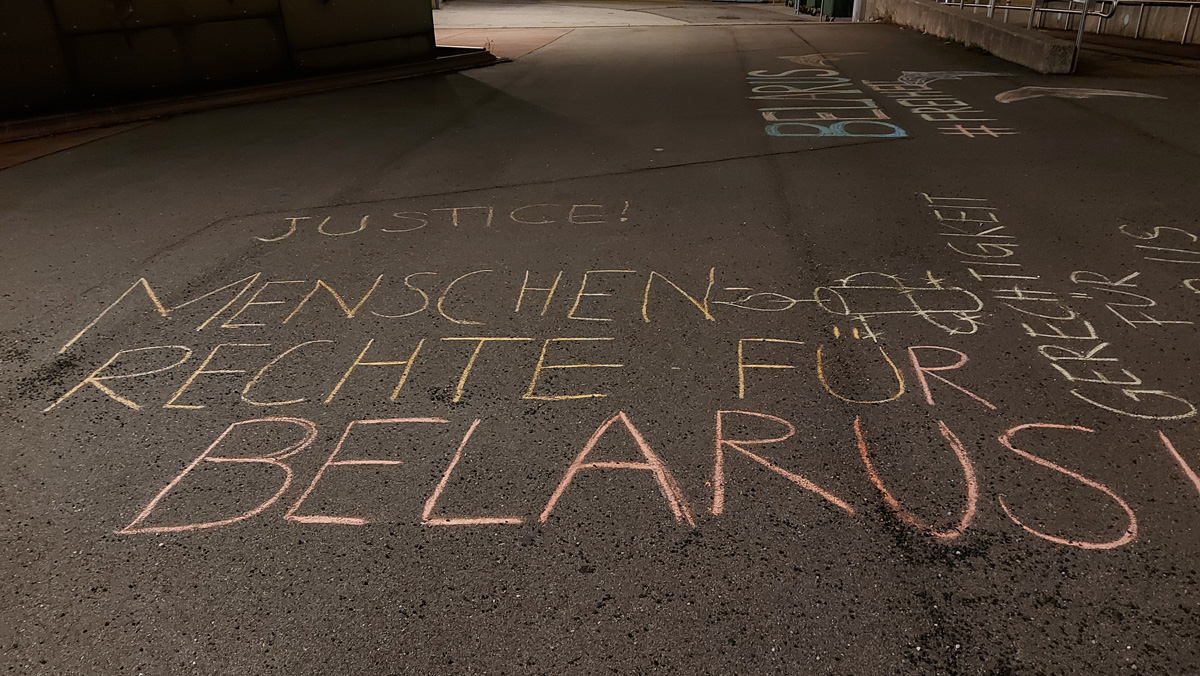 JUSTICE!
MENSCHEN-
RECHTE FÜR
BELARUS!
GERECHTIGKEIT
FÜR
BELARUS
#FREE